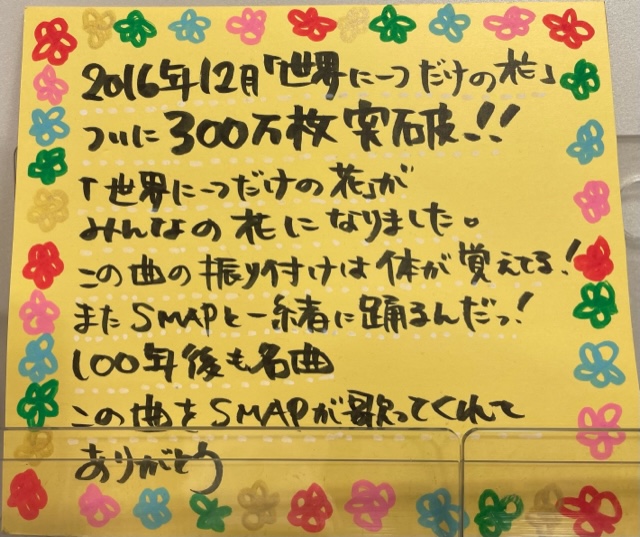 2016年12月「世界に一つだけの花」
ついに300万枚突破!!
「世界に一つだけの花」が
みんなの花になりました。
この曲の振り付けは体が覚えてる!
またSMAPと一緒に踊るんだっ!
100年後も名曲
この曲をSMAPが歌ってくれて
ありがとう